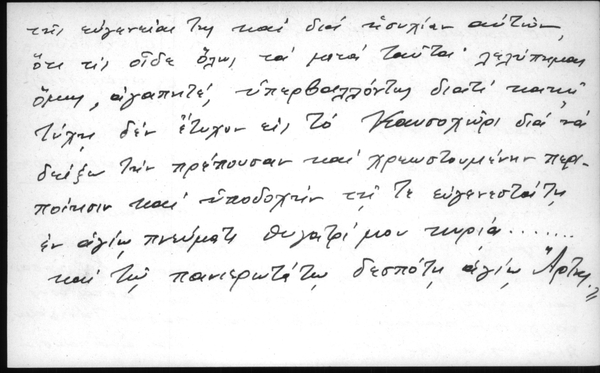 τῆς εὐγενείας της καὶ διὰ ἡσυχίαν αὐτῶν,
ὅτι τίς οἶδε ὅλως τὰ μετὰ ταῦτα· λελύπημαι
ὅμως, ἀγαπητέ, ὑπερβαλλόντως διατὶ κακῇ
τύχῃ δὲν ἔτυχον εἰς τὸ Καυσοχῶρι διὰ νὰ
δείξω τὴν πρέπουσαν καὶ χρεωστουμένην περι-
ποίησιν καὶ ὑποδοχὴν τῇ τε εὐγενεστάτῃ
ἐν ἁγίῳ πνεύματι θυγατρί μου κυρίᾳ........
καὶ τῷ πανιερωτάτῳ δεσπότῃ ἁγίῳ Ἄρτης.